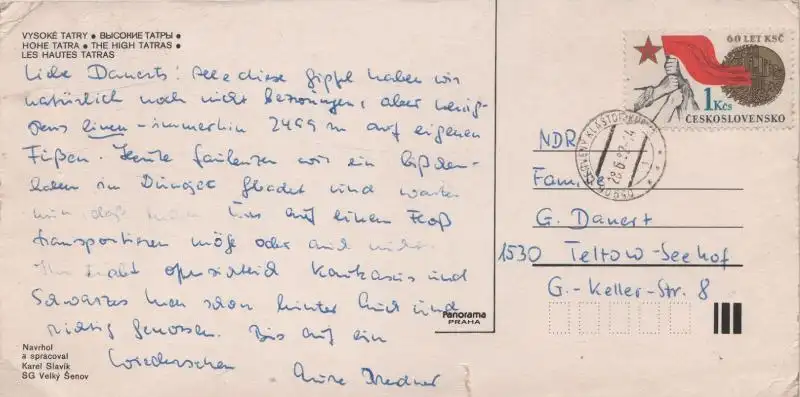 VYSOKÉ TATRY • ВЫСОКИЕ ТАТРЫ •
HOHE TATRA • THE HIGH TATRAS •
LES HAUTES TATRAS
Liebe Danerts! Alle diese Gipfel haben wir
natürlich noch nicht bezwungen, aber wenig-
stens einen - immerhin 2499 m auf eigenen
Füßen. Heute faulenzen wir ein bißchen
haben im Dunajec gebadet und warten
nun, daß man uns auf einem Floß
transportieren möge oder auch nicht.
Ihr habt Kaukasus und
Schwarzes Meer schon hinter Euch und
richtig genossen. Bis auf ein
Wiedersehen
Navrhol
a spracoval
Karel Slavík
SG Velký Šenov
Panorama
PRAHA
60 LET KSČ
1 Kčs
ČESKOSLOVENSKO
ČERVENÝ KLÁŠTOR-KÚPELE
28.6.82-14
NDR
Familie
G. Danert
1530 Teltow-Seehof
G.-Keller-Str. 8